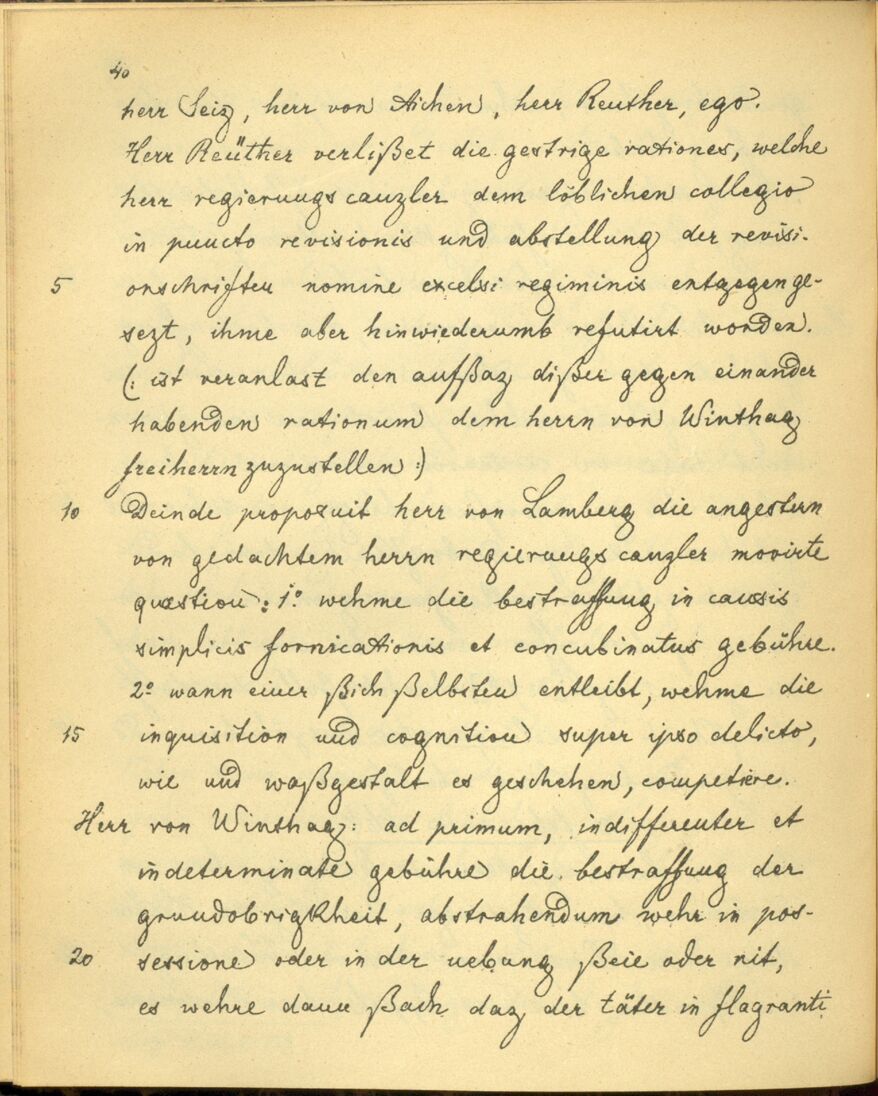 40
herr Seiz, herr von Aichen, herr Reuther, ego.
Herr Reüther verlißet die gestrige rationes, welche
herr regierungscanzler dem löblichen collegio
in puncto revisionis und abstellung der revisi-
5 onschriften nomine excelsi regiminis entgegenge-
sezt, ihme aber hinwiederumb refutirt worden.
(: ist veranlast den aufßaz dißer gegen einander
habenden rationum dem herrn von Winthag
freiherrn zuzustellen :)
10 Deinde proposuit herr von Lamberg die angestern
von gedachtem herrn regierungscanzler movirte
quæstion: 1º wehme die bestraffung in causis
simplicis fornicationis et concubinatus gebühre.
2º wann einer ßich ßelbsten entleibt, wehme die
15 inquisition und cognition super ipso delicto,
wie und waßgestalt es geschehen, competire.
Herr von Winthag: ad primum, indifferenter et
indeterminate gebühre die bestraffung der
grundobrigkheit, abstrahendum wehr in pos-
20 sessione oder in der uebung ßeie oder nit,
es wehre dann ßach daz der täter in flagranti